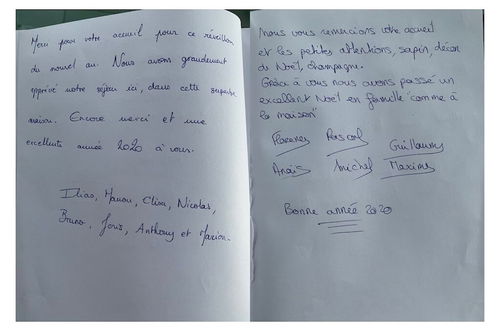 Merci pour votre accueil pour ce réveillon
du nouvel an. Nous avons grandement
apprécié notre séjour ici, dans cette superbe
maison. Encore merci et une
excellente année 2020 à vous.
Ilias, Manon, Elisa, Nicolas,
Bruno, Joris, Anthony et Marion.
Nous vous remercions votre accueil
et les petites attentions, sapin, décor
de Noël, champagne.
Grâce à vous nous avons passé un
excellent Noël en famille "comme à
la maison"
Pascal Guillaume
Anaïs Michel Maxime
Bonne année 2020